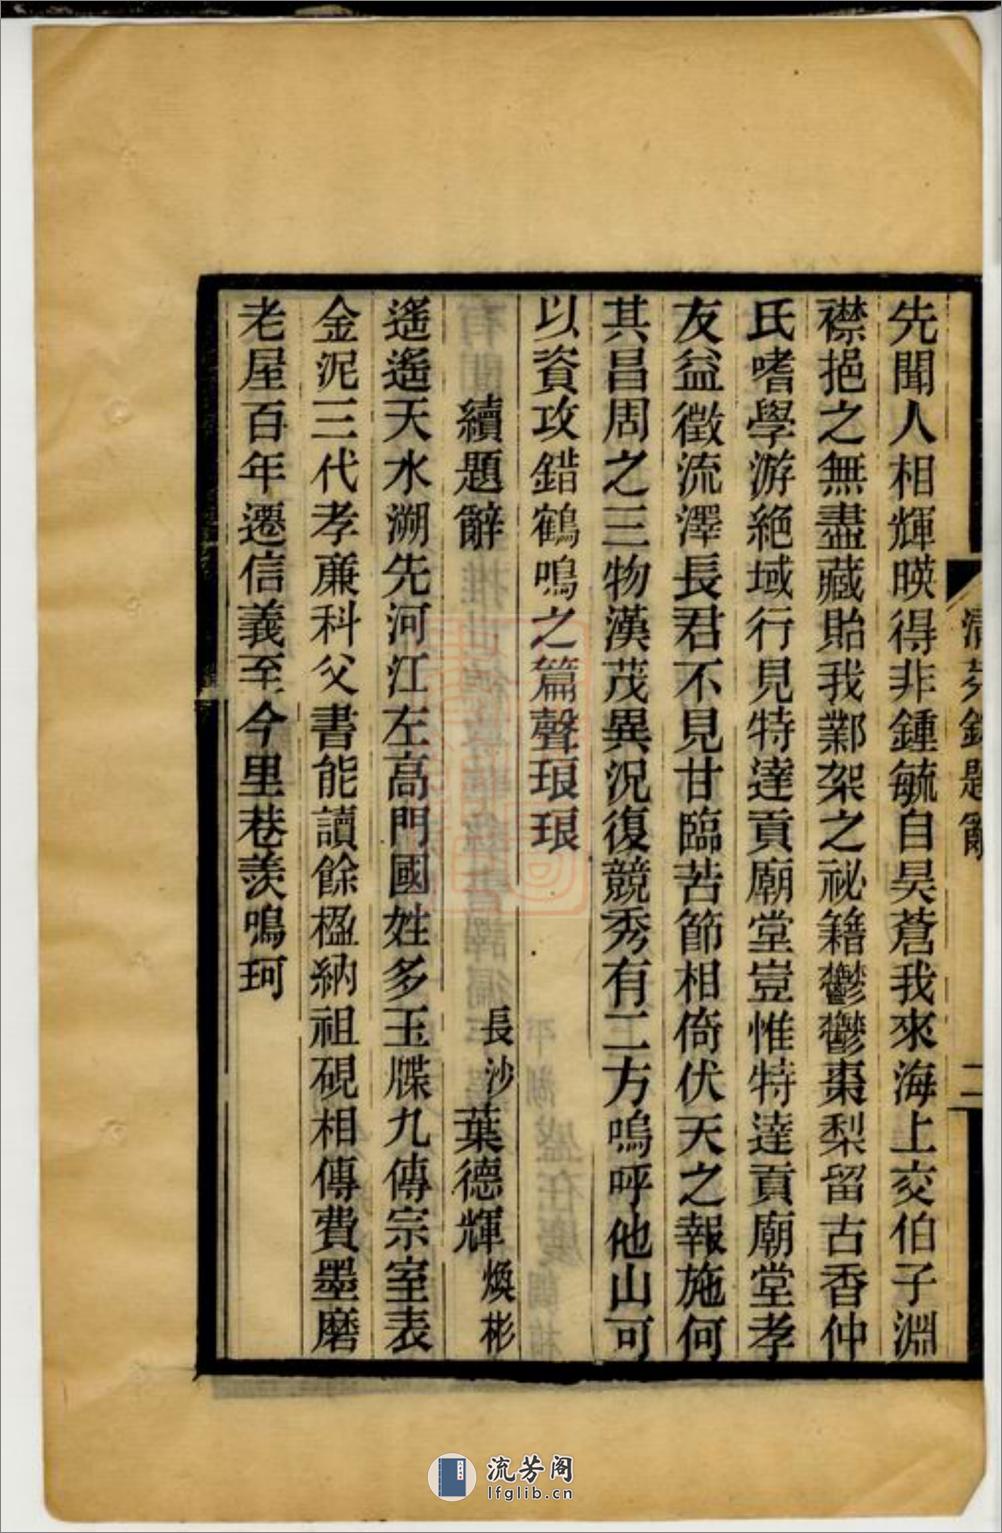 先聞人相輝暎得非鍾毓自昊蒼我來海上交伯子淵
襟挹之無盡藏貽我鄴架之祕籍鬱鬱棗梨留古香仲
氏嗜學游絕域行見特達貢廟堂豈惟特達貢廟堂孝
友益徵流澤長君不見甘臨苦節相倚伏天之報施何
其昌周之三物漢茂異況復競秀有二方嗚呼他山可
以資攻錯鶴鳴之篇聲琅琅
續題辭
長沙葉德輝煥彬
遙遙天水溯先河江左高門國姓多玉牒九傳宗室表
金泥三代孝廉科父書能讀餘楹納祖硯相傳費墨磨
老屋百年遷信義至今里巷羨鳴珂
清芬錄題辭
二
流芳阁
lfglib.cn